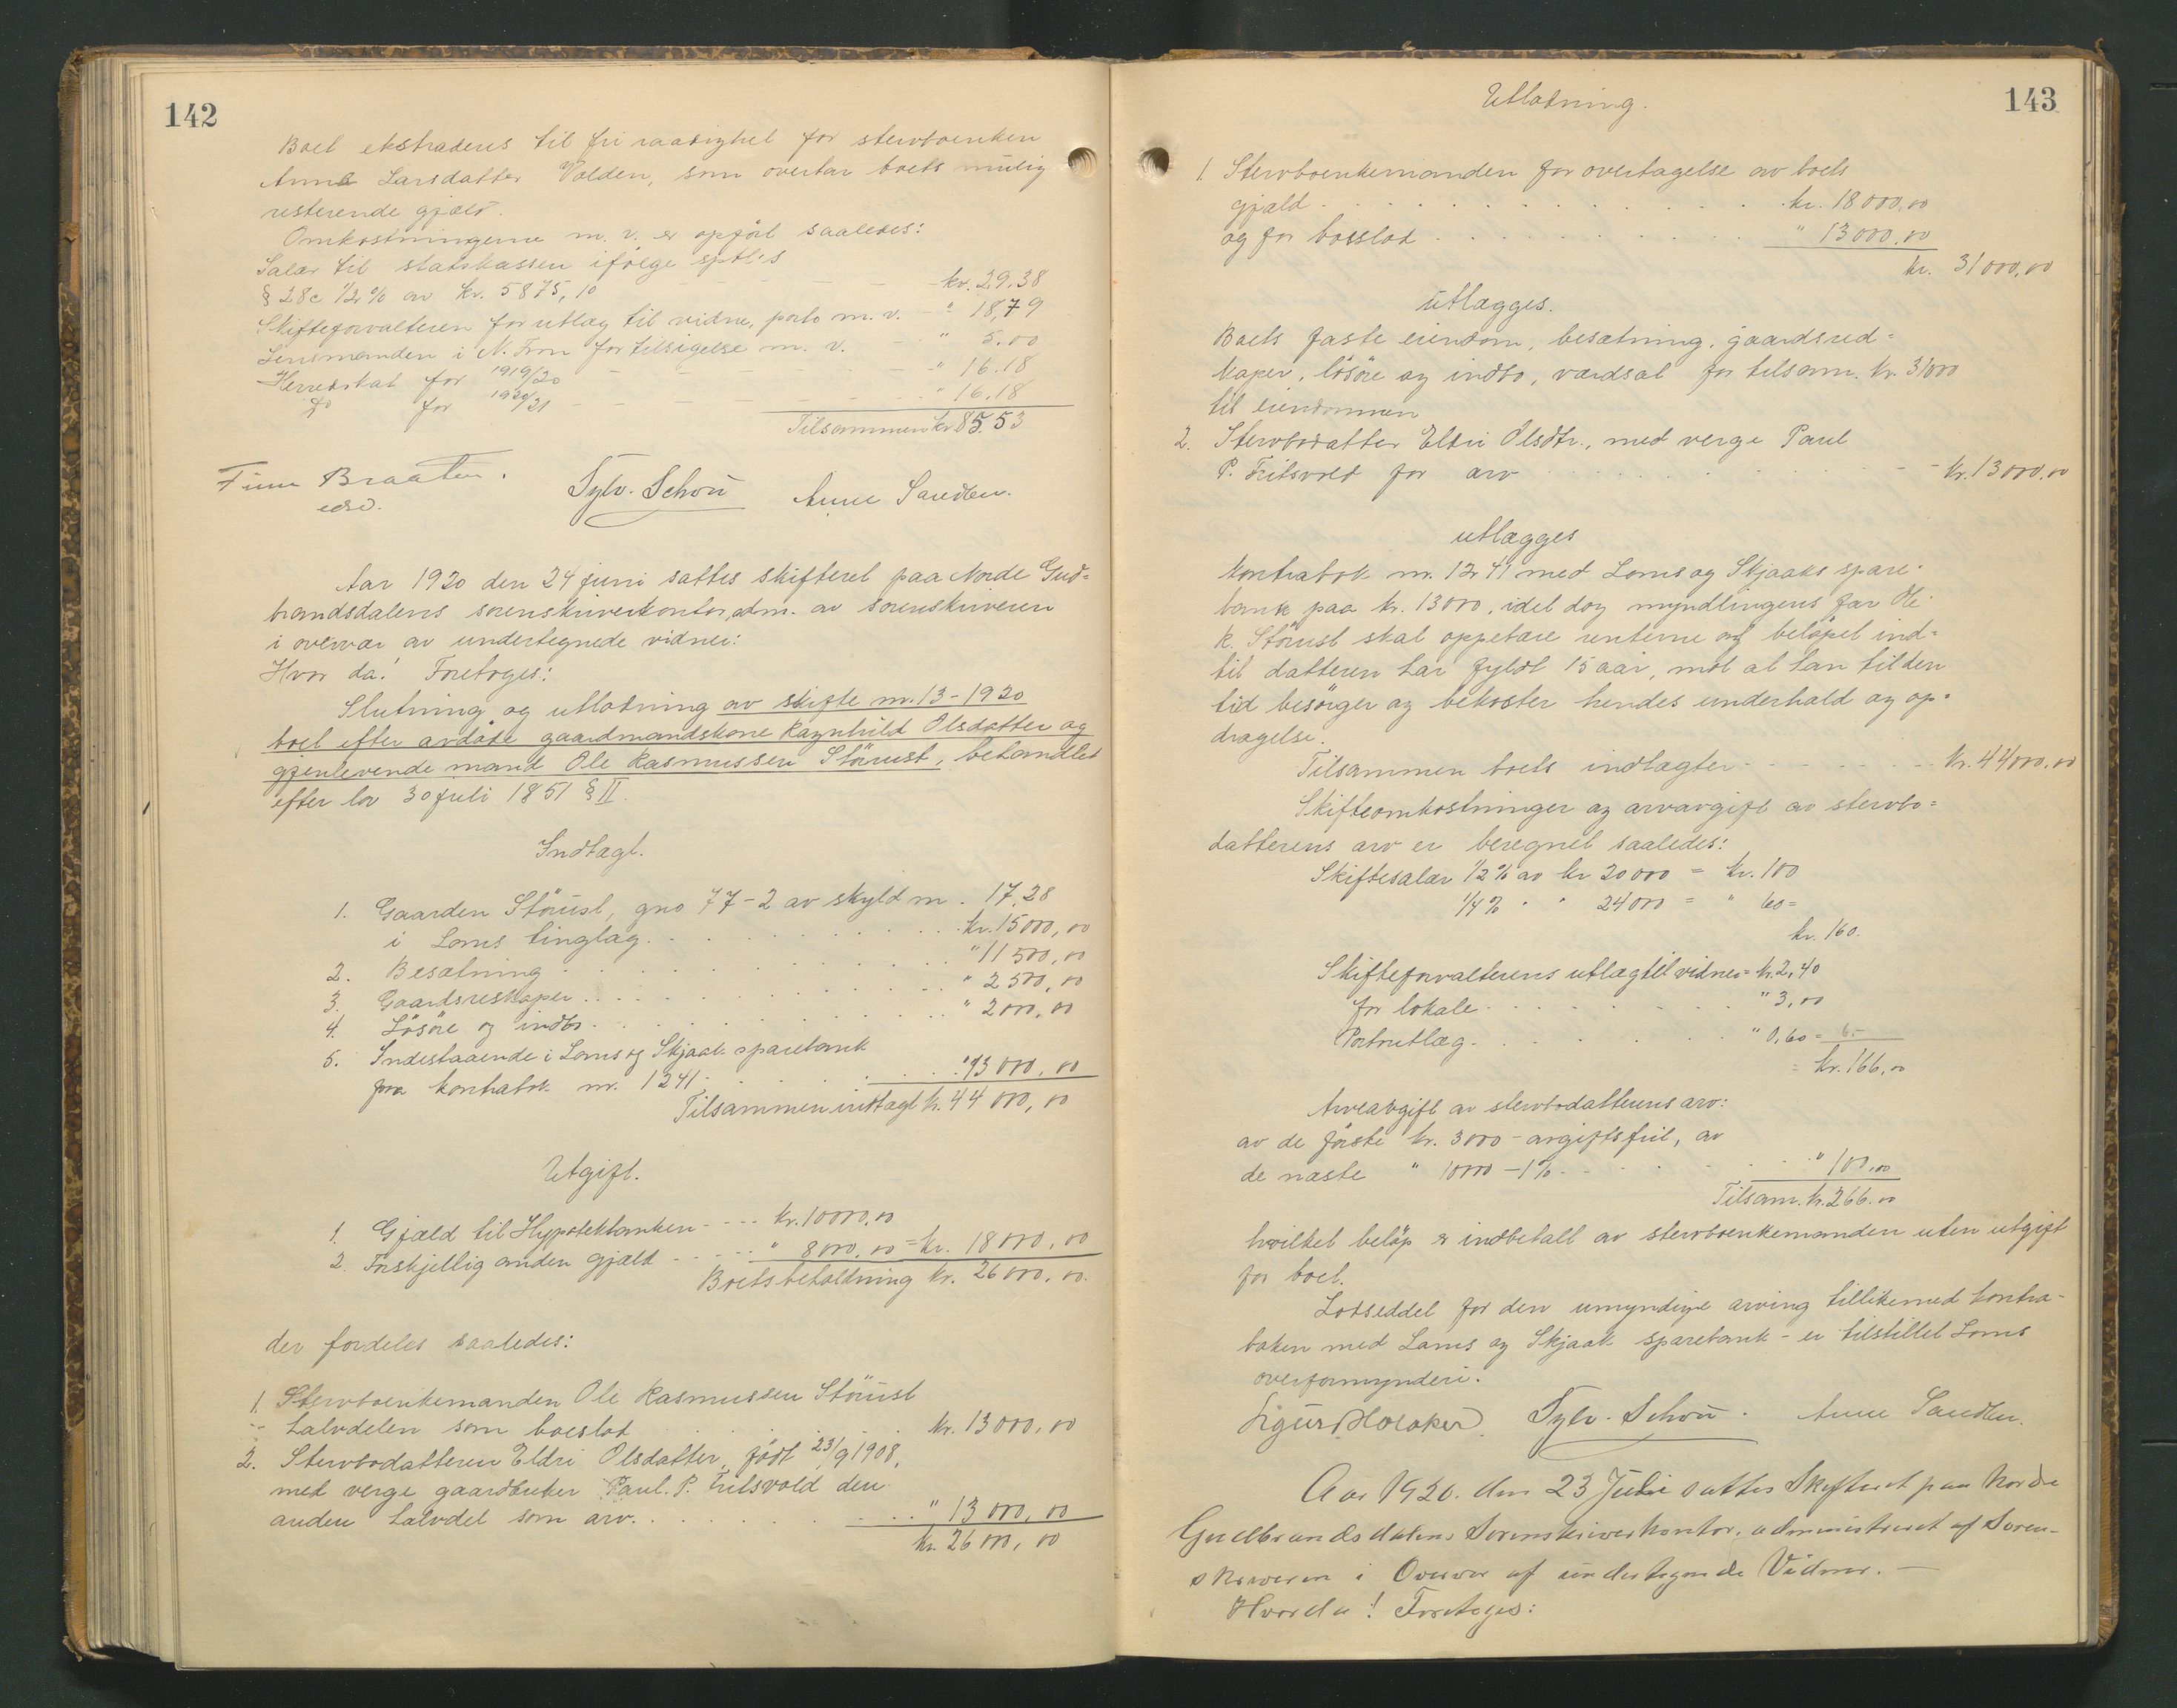 142
Boet ekstraderes til fri raadighet for stervboenken
Anne Larsdatter Volden, som overtar boets mulig
resterende gjæld.
Omkostningerne m. v. er opført saaledes:
Salær til statskassen ifølge sptl's
§ 28c 1/2 % av kr. 5875,10 - - - - - kr. 29.38
Skifteforvalteren for utlæg til vidne, porto m. v. - " 18,79
Lensmanden i N. Fron for tilsigelse m. v. " 5.00
Herredskat for 1919/20 - - - - - " 16.18
do for 1920/21 - - - - - " 16.18
Tilsammen kr. 85.53
Finn Braaten. Sylv. Schou Anne Sandbu.
edsv.
Aar 1920 den 24 juni sattes skifteret paa Nordre Gud=
brandsdalens sorenskriverkontor, adm. av sorenskriveren
i overvær av undertegnede vidner:
Hvor da! Foretoges:
Slutning og utlodning av skifte nr. 13-1920
boet efter avdøde gaardmandskone Ragnhild Olsdatter og
gjenlevende mand Ole Rasmussen Störust, behandlet
efter lov 30 juli 1851 § II.
Indtægt.
1. Gaarden Störust, gno 77-2 av skyld m. 17,28
i Loms tinglag. . . . . . . kr. 15000,00
2. Besætning . . . . . . . " 11500,00
3. Gaardsreskaper . . . . . . . " 2500,00
4. Lösöre og indbo . . . . . . . " 2000,00
5. Indestaaende i Loms og Skjaak sparebank
paa kontrabok nr. 1241 . . . . . " 13000,00
Tilsammen indtægt kr. 44000,00
Utgift.
1. Gjæld til Hypotekbanken - - - - kr. 10000,00
2. Forskjellig anden gjæld - - - - - " 8000,00 = kr. 18000,00
Boets beholdning kr. 26000,00.
der fordeles saaledes:
1. Stervboenkemanden Ole Rasmussen Störust
halvdelen som boeslod . . . . kr. 13000,00
2. Stervbodatteren Eldri Olsdatter, födt 23/9 1908,
med verge gaardbruker Paul. P. Fritsvold den
anden halvdel som arv. . . . . . . " 13000,00
kr. 26000,00
143
Utlodning.
1. Stervboenkemanden for overtagelse av boets
gjæld . . . . . . . kr. 18000,00
og for boeslod . . . . . . . " 13000,00
kr. 31000,00
utlægges.
Boets faste eiendom, besætning, gaardsred=
skaper, lösöre og indbo, værdsat for tilsam. kr. 31000
til eiendommen
2. Stervbodatter Eldri Olsdtr., med verge Paul
P. Fritsvold for arv . . . . . . - - kr. 13000,00
utlægges
kontrabok nr. 1241 med Loms og Skjaaks spare-
bank paa kr. 13000, idet dog myndlingens far Ole
R. Störust skal oppebære renterne og beløpet ind=
til datteren har fyldt 15 aar, mot at han til den
tid besörger og bekoster hendes underhold og op=
dragelse.
Tilsammen boets indtægter - - - - - - kr. 44000,00
Skifteomkostninger og arvavgift av stervbo=
datterens arv er beregnet saaledes:
Skiftesalær 1/2 % av kr 20000 = kr. 100
1/4 % " " 24000 = " 60 =
kr. 160.
Skifteforvalterens utlæg til vidner = kr. 2,40
for lokale . . . . . . " 3,00
Portoutlæg . . . . . . " 0,60 = 6.-
= kr. 166,00
Arveavgift av stervbodatterens arv:
av de förste kr. 3000 - avgiftsfrit, av
de næste " 10000 - 1% . . . . . . " 100,00
Tilsam. kr. 266.00
hvilket beløp er indbetalt av stervboenkemanden uten utgift
for boet.
Lodseddel for den umyndige arving tillikemed kontra-
boken med Loms og Skjaak sparebank - er tilstillet Loms
overformynderi.
Sigurd Holaker. Sylv. Schou. Anne Sandbu.
Aar 1920. den 23 Juli sattes Skifteret paa Nordre
Gudbrandsdalens Sorenskriverkontor, administreret af Soren-
skriveren i Overvær af undertegnede Vidner. —
Hvor da! Foretoges: